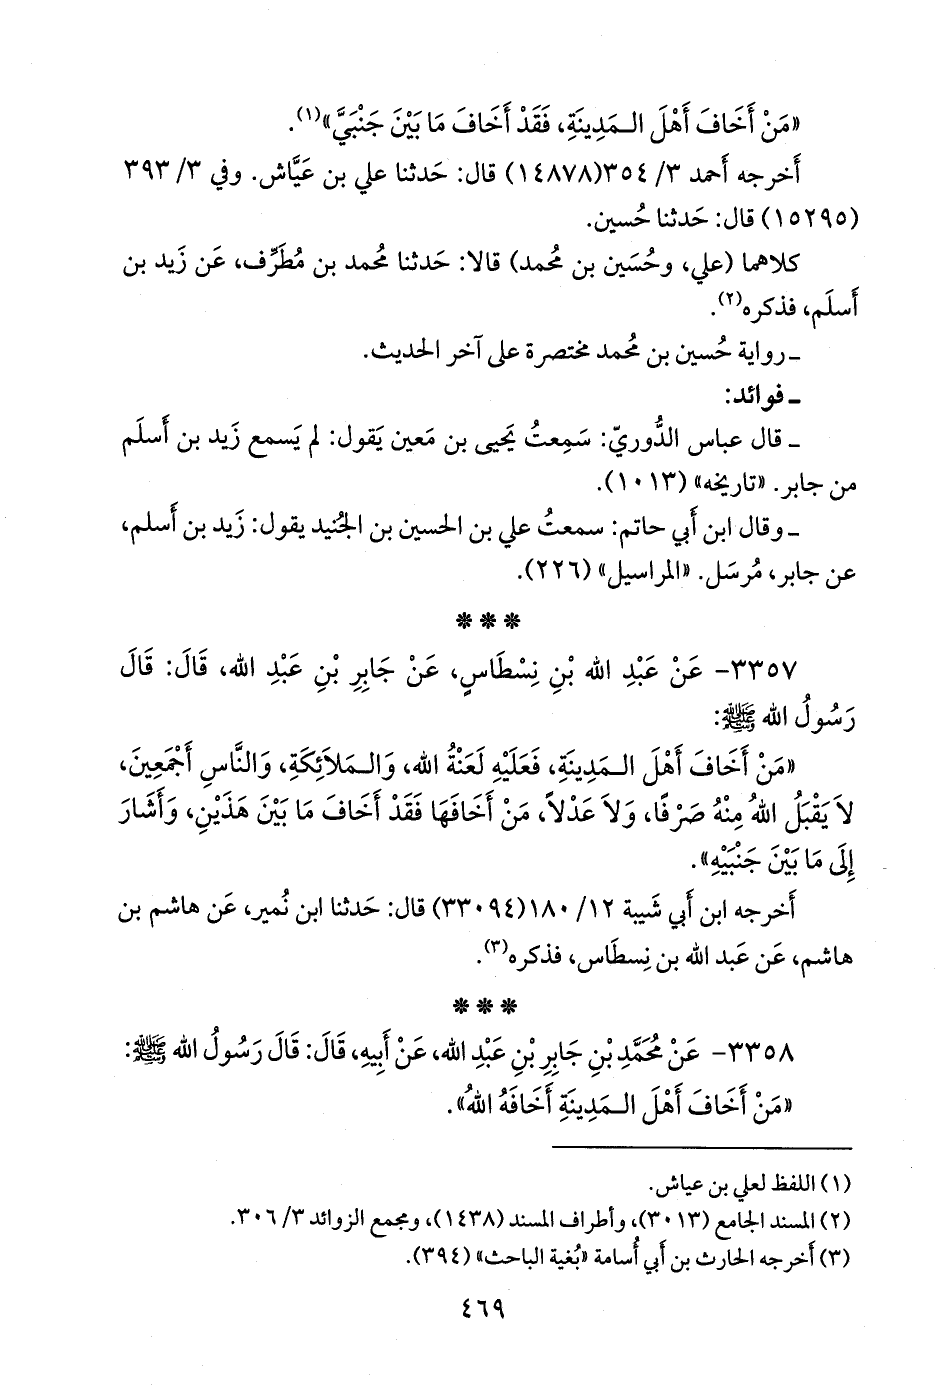 «مَنْ أَخَافَ أَهْلَ الـمَدِينَةِ، فَقَدْ أَخَافَ مَا بَيْنَ جَنْبَيَّ»(١).
أَخرجه أَحمد ٣/ ٣٥٤(١٤٨٧٨) قال: حَدثنا علي بن عَيَّاش. وفي ٣/ ٣٩٣
(١٥٢٩٥) قال: حَدثنا حُسين.
كلاهما (علي، وحُسَين بن مُحمد) قالا: حَدثنا مُحمد بن مُطَرِّف، عَن زَيد بن
أَسلَم، فذكره(٢).
ـ رواية حُسين بن مُحمد مختصرة على آخر الحديث.
ـ فوائد:
ـ قال عباس الدُّوريّ: سَمِعتُ يَحيى بن مَعين يَقول: لم يَسمع زَيد بن أَسلَم
من جابر. «تاريخه» (١٠١٣).
ـ وقال ابن أَبي حاتم: سمعتُ علي بن الحسين بن الجُنيد يقول: زَيد بن أَسلم،
عن جابر، مُرسَل. «المراسيل» (٢٢٦).
* * *
٣٣٥٧- عَنْ عَبْدِ الله بْنِ نِسْطَاسٍ، عَنْ جَابِرِ بْنِ عَبْدِ الله، قَالَ: قَالَ
رَسُولُ الله ﷺ:
«مَنْ أَخَافَ أَهْلَ الـمَدِينَةِ، فَعَلَيْهِ لَعْنَةُ الله، وَالـمَلاَئِكَةِ، وَالنَّاسِ أَجْمَعِينَ،
لاَ يَقْبَلُ اللهُ مِنْهُ صَرْفًا، وَلاَ عَدْلاً، مَنْ أَخَافَهَا فَقَدْ أَخَافَ مَا بَيْنَ هَذَيْنِ، وَأَشَارَ
إِلَى مَا بَيْنَ جَنْبَيْهِ».
أَخرجه ابن أَبي شَيبة ١٢/ ١٨٠(٣٣٠٩٤) قال: حَدثنا ابن نُمير، عَن هاشم بن
هاشم، عَن عَبد الله بن نِسطَاس، فذكره(٣).
* * *
٣٣٥٨- عَنْ مُحَمَّدِ بْنِ جَابِرِ بْنِ عَبْدِ الله، عَنْ أَبِيهِ، قَالَ: قَالَ رَسُولُ الله ﷺ:
«مَنْ أَخَافَ أَهْلَ الـمَدِينَةِ أَخَافَهُ اللهُ».
(١) اللفظ لعلي بن عياش.
(٢) المسند الجامع (٣٠١٣)، وأطراف المسند (١٤٣٨)، ومجمع الزوائد ٣/ ٣٠٦.
(٣) أخرجه الحارث بن أبي أُسامة «بُغية الباحث» (٣٩٤).
٤٦٩